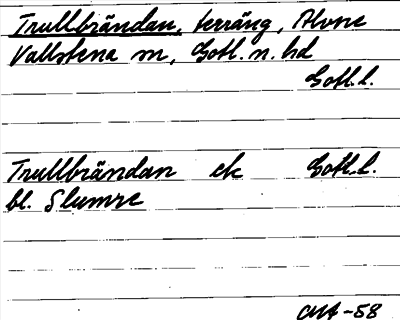 Trullbrändan, terräng, Alvne
Vallstena sn, Gotl. n. hd
Gotl. l.
Trullbrändan ek Gotl. l.
bl. Slumre
-58